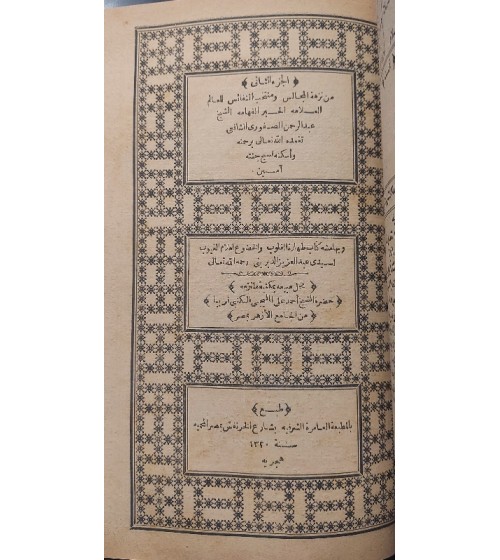 ﴿ الجزء الثانى ﴾
من نزهة المجالس ومنتخب النفائس للعالم
العلامه الحبر الفهامه الشيخ
عبد الرحمن الصفورى الشافعى
تغمده الله تعالى برحمته
وأسكنه فسيح جنته
آمين
وبهامشه كتاب طهارة القلوب والخضوع لعلام الغيوب
لسيدى عبد العزيز الديرينى رحمه الله تعالى
﴿ محل مبيعه بمكتبة ملتزمه ﴾
﴿ حضرة الشيخ أحمد على المليجى الكتبى قريبا ﴾
﴿ من الجامع الأزهر بمصر ﴾
﴿ طبع ﴾
بالمطبعة العامرة الشرفيه بشارع الخرنفش بمصر المحميه
سنة ١٣٢٠
هجريه